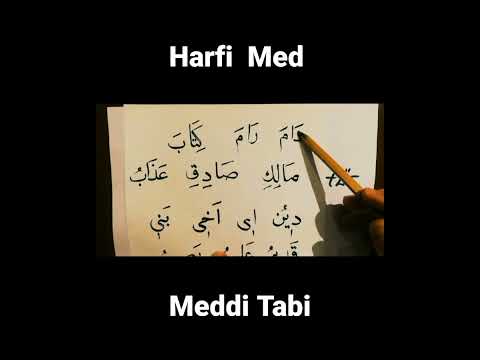 Harfi Med
دَامَ رَامَ كِتَابَ
مَالِكِ صَادِقِ عَذَابُ
دٖينُ اٖى اَخٖى بَنٖى
Meddi Tabi